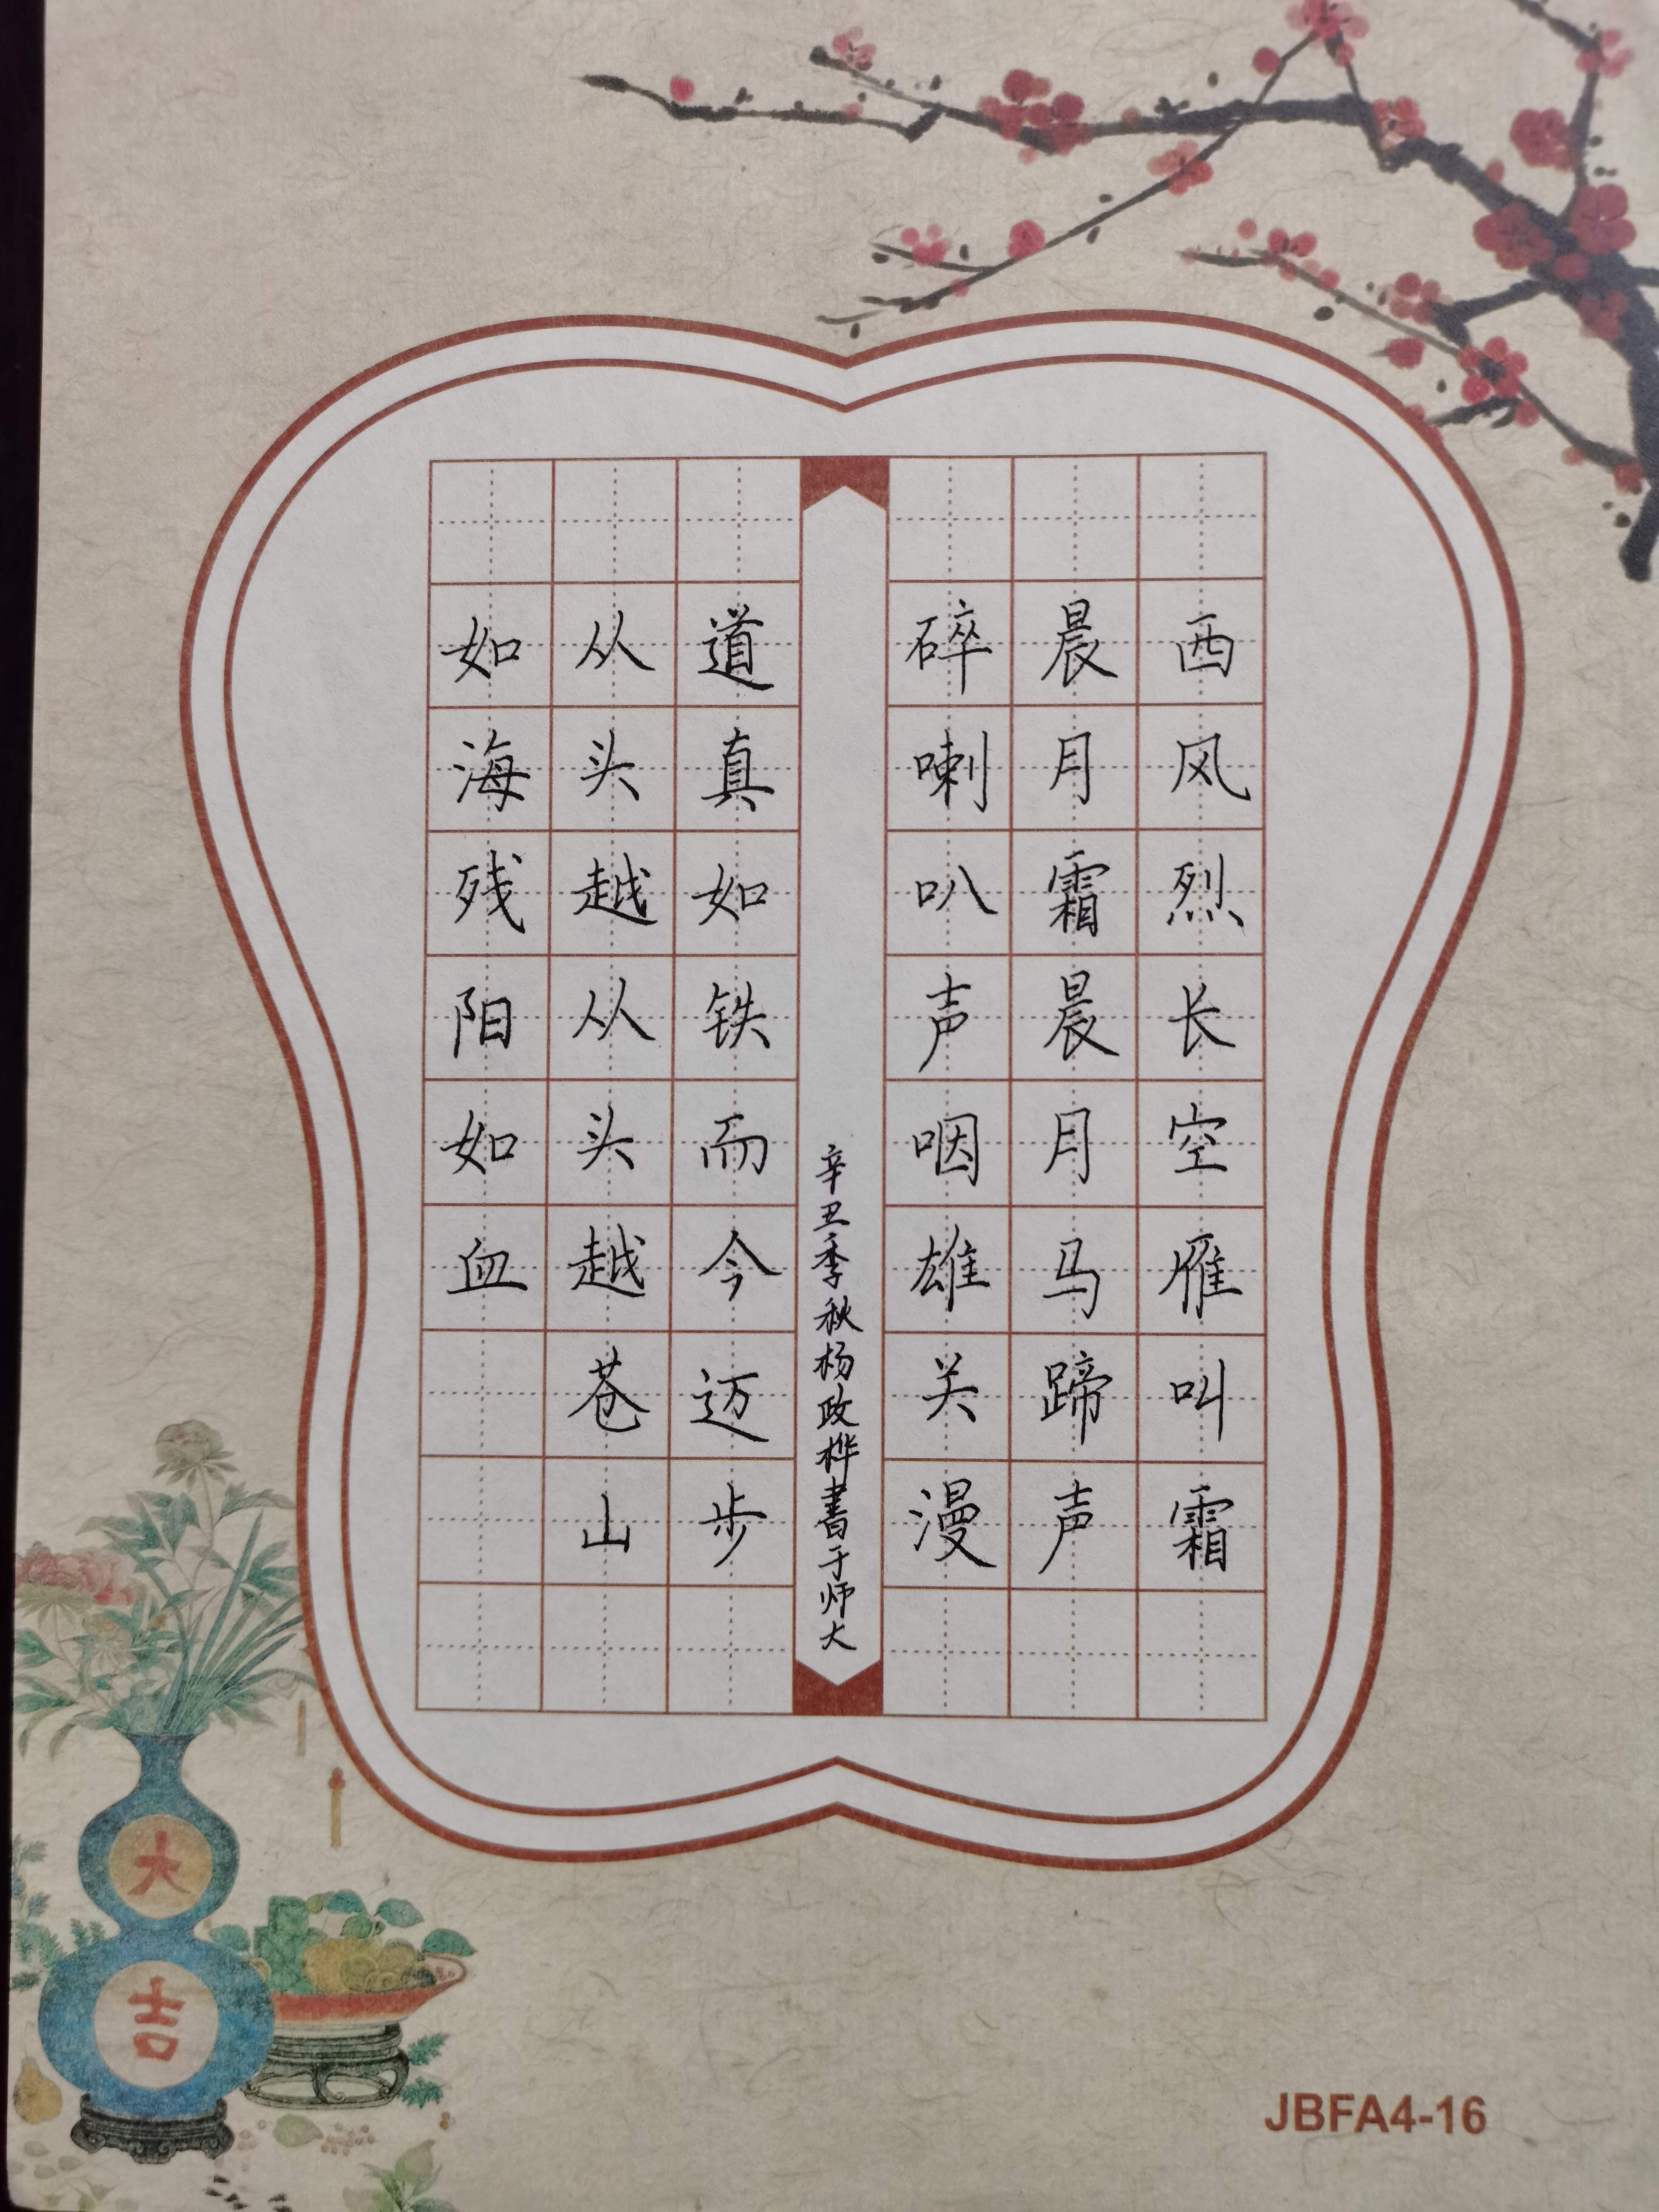 西风烈长空雁叫霜
晨月霜晨月马蹄声
碎喇叭声咽雄关漫
道真如铁而今迈步
从头越从头越苍山
如海残阳如血
辛丑季秋杨政桦書于师大
大吉
JBFA4-16